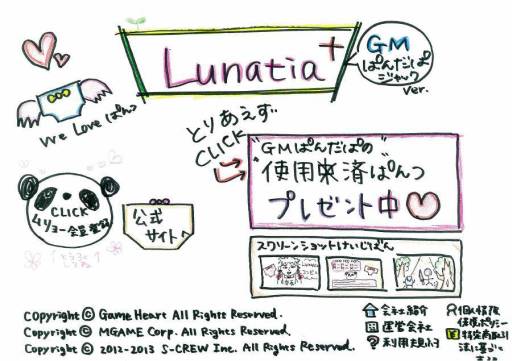 Lunatia+
GM
ぱんだぱ
ジャック
ver.
We Love ぱんつ
とりあえず
CLICK
"GMぱんだぱの"
使用来済ぱんつ
プレゼント中♡
CLICK
ムリョー会員登録
公式
サイトへ
スクリーンショットけいじばん
Copyright © Game Heart All Rights Reserved.
Copyright © MGAME Corp. All Rights Reserved.
Copyright © 2012-2013 S-CREW Inc. All Rights Reserved.
会社紹介
運営会社
利用規約
個人情報
保護ポリシー
特定商取引
法に基づく